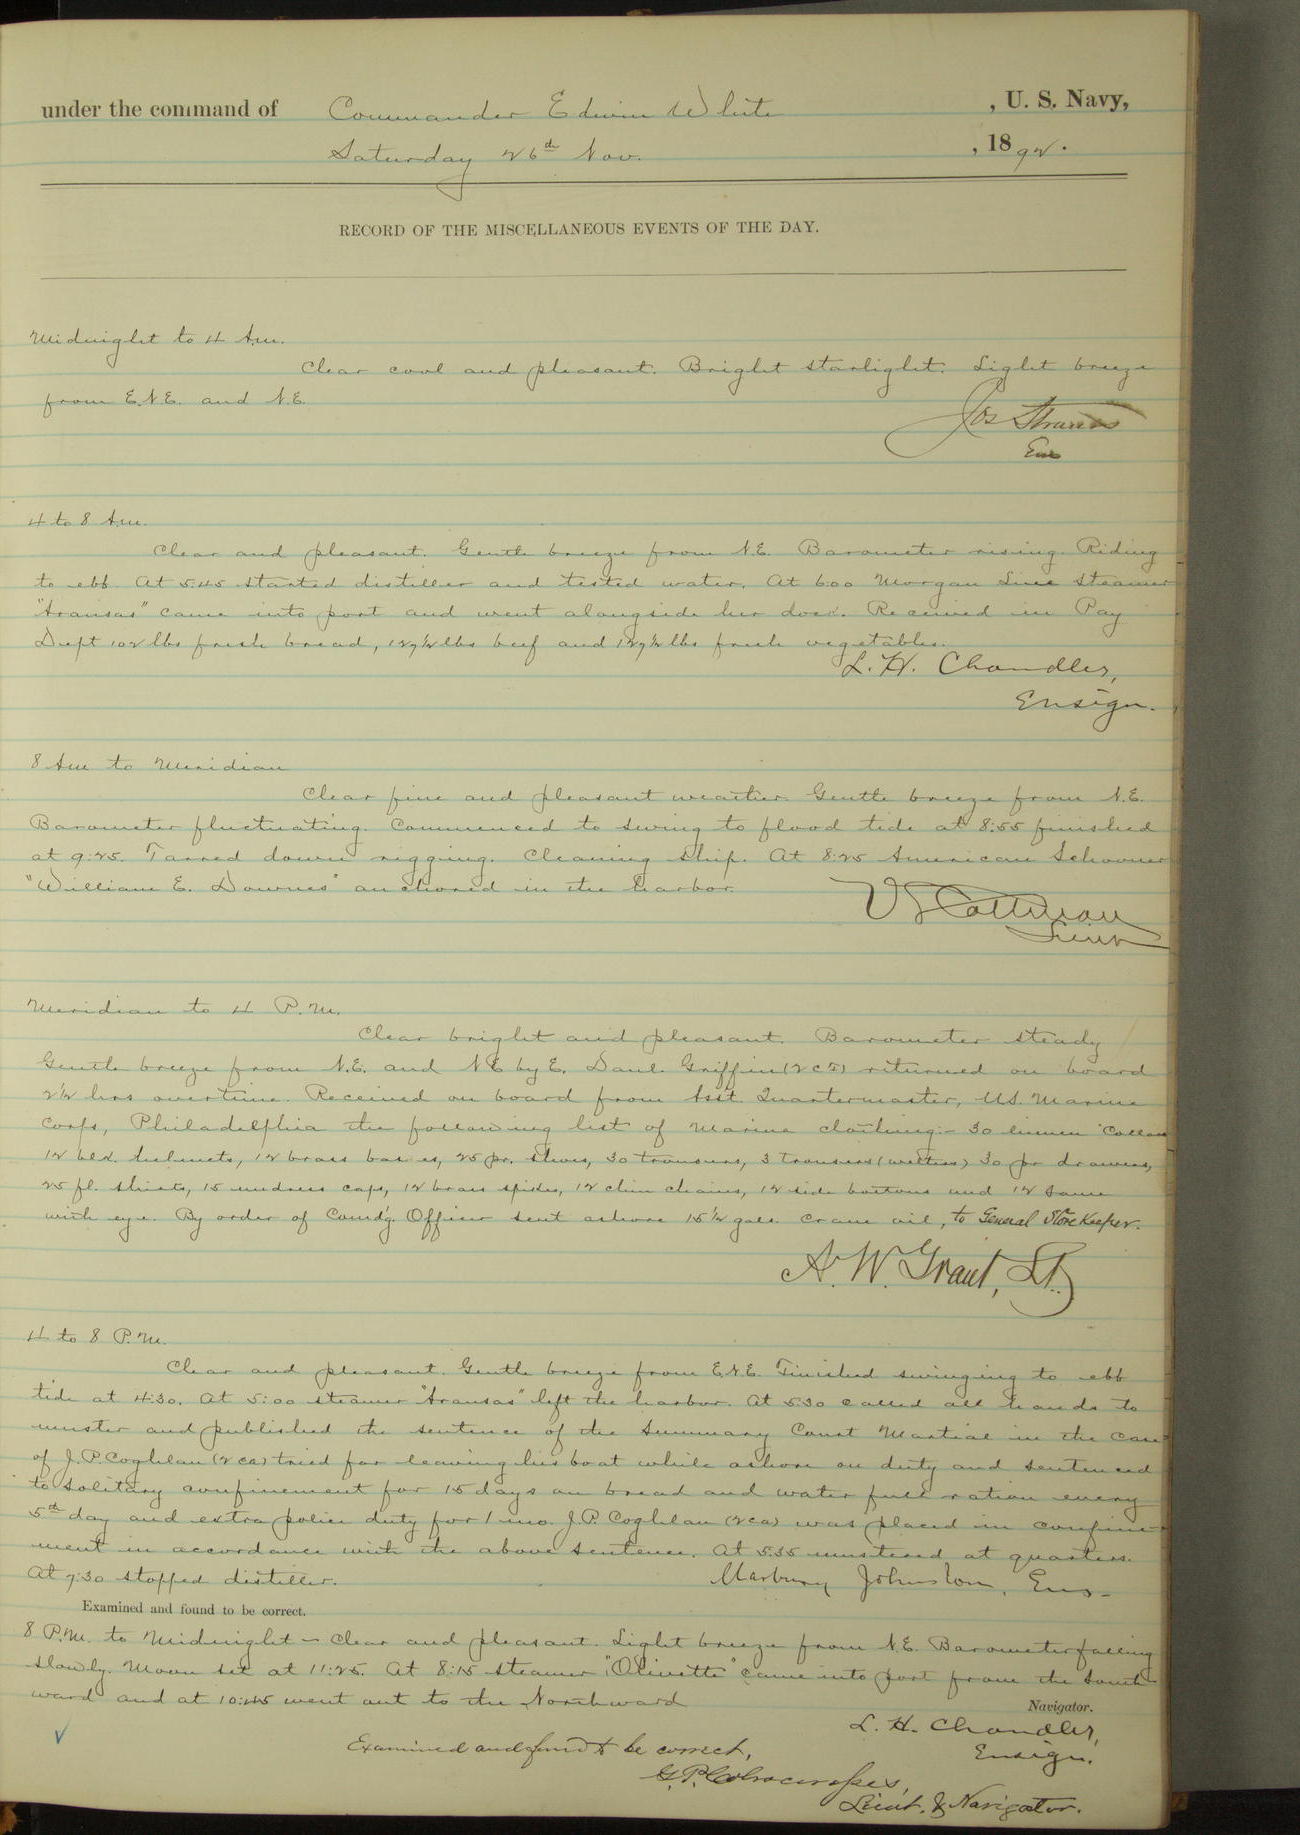 under the command of Commander Edwin White , U. S. Navy,
Saturday 26th Nov. , 1892.
RECORD OF THE MISCELLANEOUS EVENTS OF THE DAY.
Midnight to 4 A.m.
Clear cool and pleasant. Bright starlight. Light breeze
from E.N.E. and N.E.
Jos Strauss
Ens
4 to 8 A.m.
Clear and pleasant. Gentle breeze from N.E. Barometer rising. Riding
to ebb. At 5:45 started distiller and tested water. At 6:00 Morgan Line Steamer
"Aransas" came into port and went alongside her dock. Received in Pay
Dept 102 lbs fresh bread, 127½ lbs beef and 127½ lbs fresh vegetables.
L. H. Chandler,
Ensign.
8 Am to Meridian
Clear fine and pleasant weather. Gentle breeze from N.E.
Barometer fluctuating. Commenced to swing to flood tide at 8:55 finished
at 9:25. Tarred down rigging. Cleaning ship. At 8:25 American Schooner
"William E. Downes" anchored in the harbor.
V S Cottman
Lieut
Meridian to 4 P.m.
Clear bright and pleasant. Barometer steady
Gentle breeze from N.E. and NE by E. Danl. Griffin returned on board
2½ hrs overtime. Received on board from Asst. Quartermaster, U.S. Marine
Corps, Philadelphia the following list of Marine clothing:- 30 linnen Collars
12 blk. helmets, 12 brass bases, 25 pr. shoes, 30 trousers, 3 trousers 30 pr drawers,
25 fl. shirts, 15 undress caps, 12 brass spikes, 12 chin chains, 12 side buttons and 12 same
with eye. By order of Comd'g. Officer sent ashore 15½ gals. crane oil, to General Store Keeper.
A. W. Grant, Lt.
4 to 8 P.m.
Clear and pleasant. Gentle breeze from E.N.E. Finished swinging to ebb
tide at 4:30. At 5:00 steamer "Aransas" left the harbor. At 5:30 called all hands to
muster and published the sentence of the Summary Court Martial in the case
of J. P. Coghlan (2ca) tried for leaving his boat while ashore on duty and sentenced
to solitary confinement for 15 days on bread and water full ration every
5th day and extra police duty for 1 mo. J. P. Coghlan (2ca) was placed in confine-
ment in accordance with the above sentence. At 5:35 mustered at quarters.
At 7:30 stopped distiller. Marbury Johnston, Ens-
Examined and found to be correct.
8 P.M. to Midnight - Clear and pleasant. Light breeze from N.E. Barometer falling
slowly. Moon set at 11:25. At 8:15 steamer "Olivette" came into port from the South-
ward and at 10:45 went out to the Northward
Navigator.
L. H. Chandler,
Ensign.
Examined and found to be correct,
G. P. Colvocoresses,
Lieut. & Navigator.